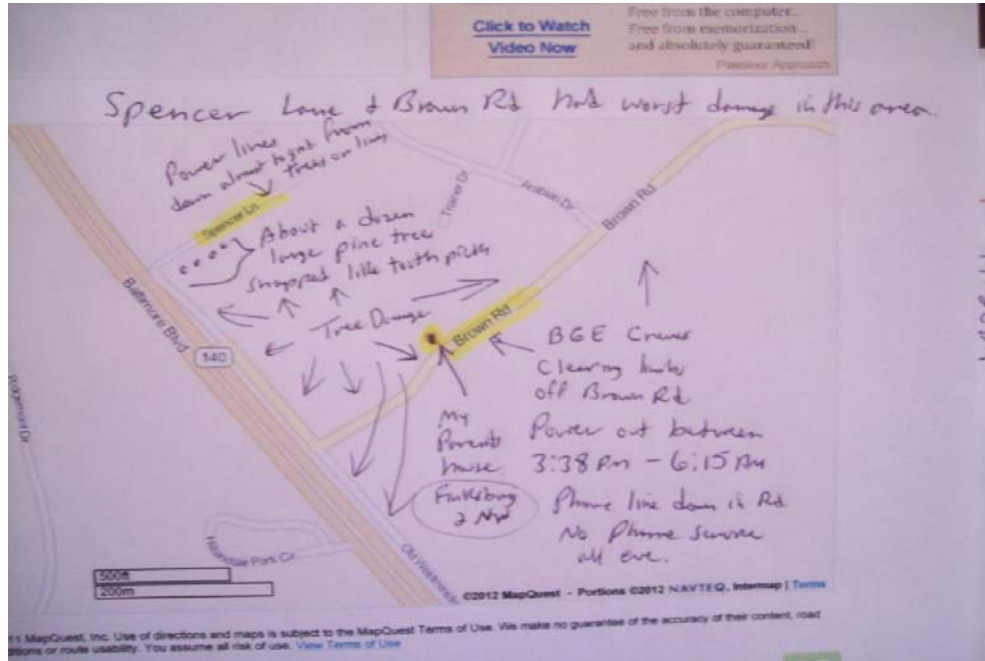 Click to Watch
Video Now
Free from the computer...
Free from memorization...
and absolutely guaranteed!
Pimsleur Approach
Spencer Lane & Brown Rd had worst damage in this area.
Power lines
down almost from
trees on lines
Spencer Ln
About a dozen
large pine tree
snapped like tooth picks
Trainer Dr
Arabian Dr
Brown Rd
Baltimore Blvd
140
Tree Damage
Brown Rd
BGE Crews
Clearing limbs
off Brown Rd
My
Parents
house
Finksburg
2 NW
Power out between
3:38 Pm - 6:15 Pm
Phone line down in Rd
No Phone service
all eve.
Ridgemont Dr
Park Cir
Old Westminster
500ft
200m
©2012 MapQuest - Portions ©2012 NAVTEQ, Intermap | Terms
11 MapQuest, Inc. Use of directions and maps is subject to the MapQuest Terms of Use. We make no guarantee of the accuracy of their content, road
ditions or route usability. You assume all risk of use. View Terms of Use